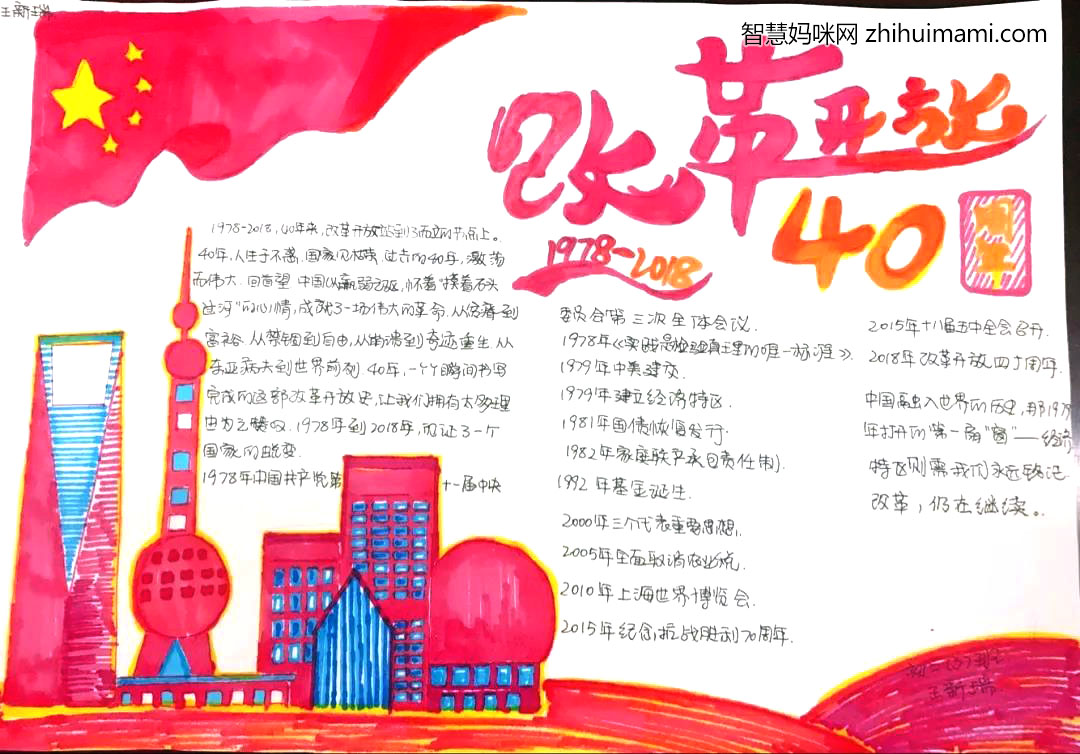 王新瑞
智慧妈咪网 zhihuimami.com
改革开放
40
周年
1978-2018
1978-2018,40年来,改革开放站到了而立的节点上。
40年,人生于不惑,国家见
过去的40年,激荡
而伟大.回首望中国从羸弱之
怀着"摸着石头
过河"的心情,成就了一场伟大的革命.从贫瘠到
富裕.从禁锢到自由,从
到奇迹重生.从
东亚病夫到世界前列.40年,一个个瞬间书写
完成的这部改革开放史,让我们拥有太多理
由为之
1978年到2018年,见证了一个
国家的蜕变.
1978年中国共产党第 十一届中央
委员会第三次全体会议.
1978年《实践是检验真理的唯一标准》.
1979年中美建交.
1979年建立经济特区.
1981年国债恢复发行.
1982年家庭联产承包责任制.
1992年基金诞生.
2000年三个代表重要思想.
2005年全面取消农业税.
2010年上海世界博览会.
2015年纪念抗战胜利70周年.
2015年十八届五中全会召开.
2018年改革开放四十周年.
中国融入世界的历史,那1978
年打开的第一扇"窗"——经济
特区则需我们永远铭记
改革,仍在继续。
初一(37)班
王新瑞